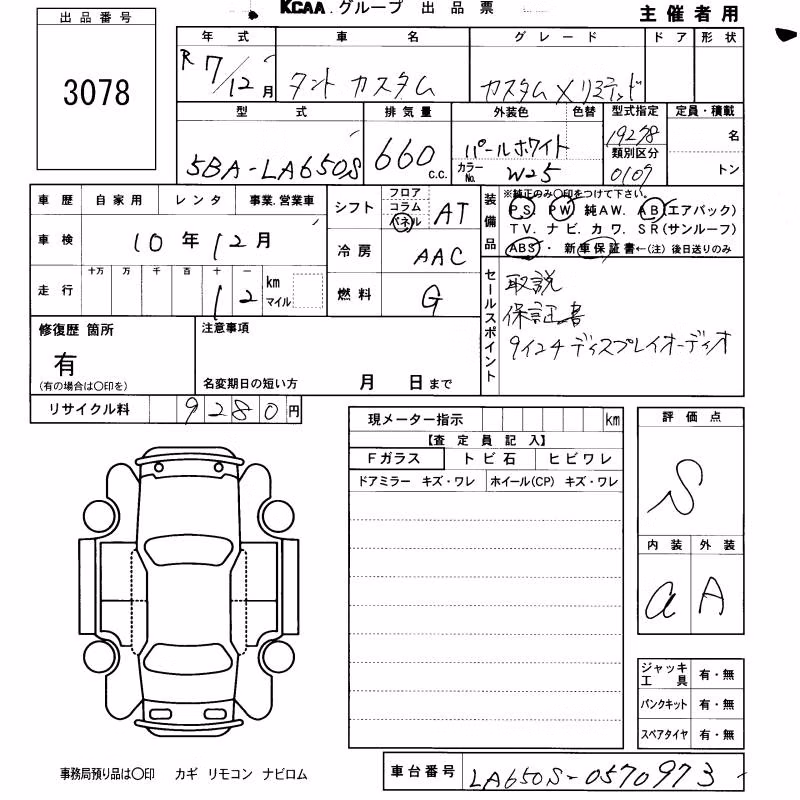 KCAA.グループ 出品票
主催者用
出品番号
3078
年式 車名 グレード ドア 形状
R7/12月 タント カスタム カスタムXリミテッド
型式 排気量 外装色 色替 型式指定 定員・積載
5BA-LA650S 660c.c. パールホワイト 19278 名
カラーNo. W25 類別区分 0107 トン
車歴 自家用 レンタ 事業.営業車
シフト フロア コラム パネル AT
装備品 ※純正のみ○印をつけて下さい。
PS. PW. 純AW. AB(エアバック)
TV. ナビ. カワ. SR(サンルーフ)
ABS・ 新車保証書←(注)後日送りのみ
車検 10年12月
冷房 AAC
走行 十万 万 千 百 十 一 12 km マイル
燃料 G
セールスポイント 取説
保証書
9インチディスプレイオーディオ
修復歴 箇所
有
(有の場合は○印を)
注意事項
名変期日の短い方 月 日まで
リサイクル料 9280円
現メーター指示 km
【査定員記入】
Fガラス トビ石 ヒビワレ
ドアミラー キズ・ワレ ホイール(CP) キズ・ワレ
評価点
S
内装 外装
a A
ジャッキ工具 有・無
パンクキット 有・無
スペアタイヤ 有・無
事務局預り品は○印 カギ リモコン ナビロム
車台番号 LA650S-0570973